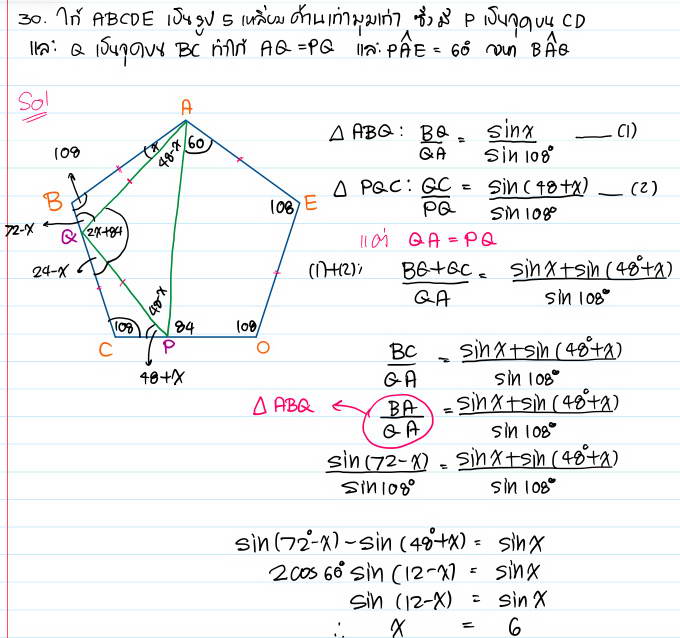 30. ให้ ABCDE เป็นรูป 5 เหลี่ยมด้านเท่ามุมเท่า ซึ่งมี P เป็นจุดบน CD
และ Q เป็นจุดบน BC ทำให้ AQ = PQ และ PÂE = 60° จงหา BÂQ
Sol
A
x 48-x 60
108
B
E
108
72-x
Q
2x+84
24-x
48-x
108
84
108
C
P
O
48+x
△ ABQ : BQ/QA = sinx/sin 108° —— (1)
△ PQC : QC/PQ = sin(48+x)/sin 108° — (2)
แต่ QA = PQ
(1)+(2); BQ+QC/QA = sinx+sin(48°+x)/sin 108°
BC/QA = sinx+sin(48°+x)/sin 108°
△ ABQ ← BA/QA = sinx+sin(48°+x)/sin 108°
sin(72-x)/sin108° = sinx+sin(48°+x)/sin 108°
sin(72°-x) - sin(48°+x) = sinx
2cos60° sin(12-x) = sinx
sin (12-x) = sinx
∴ x = 6